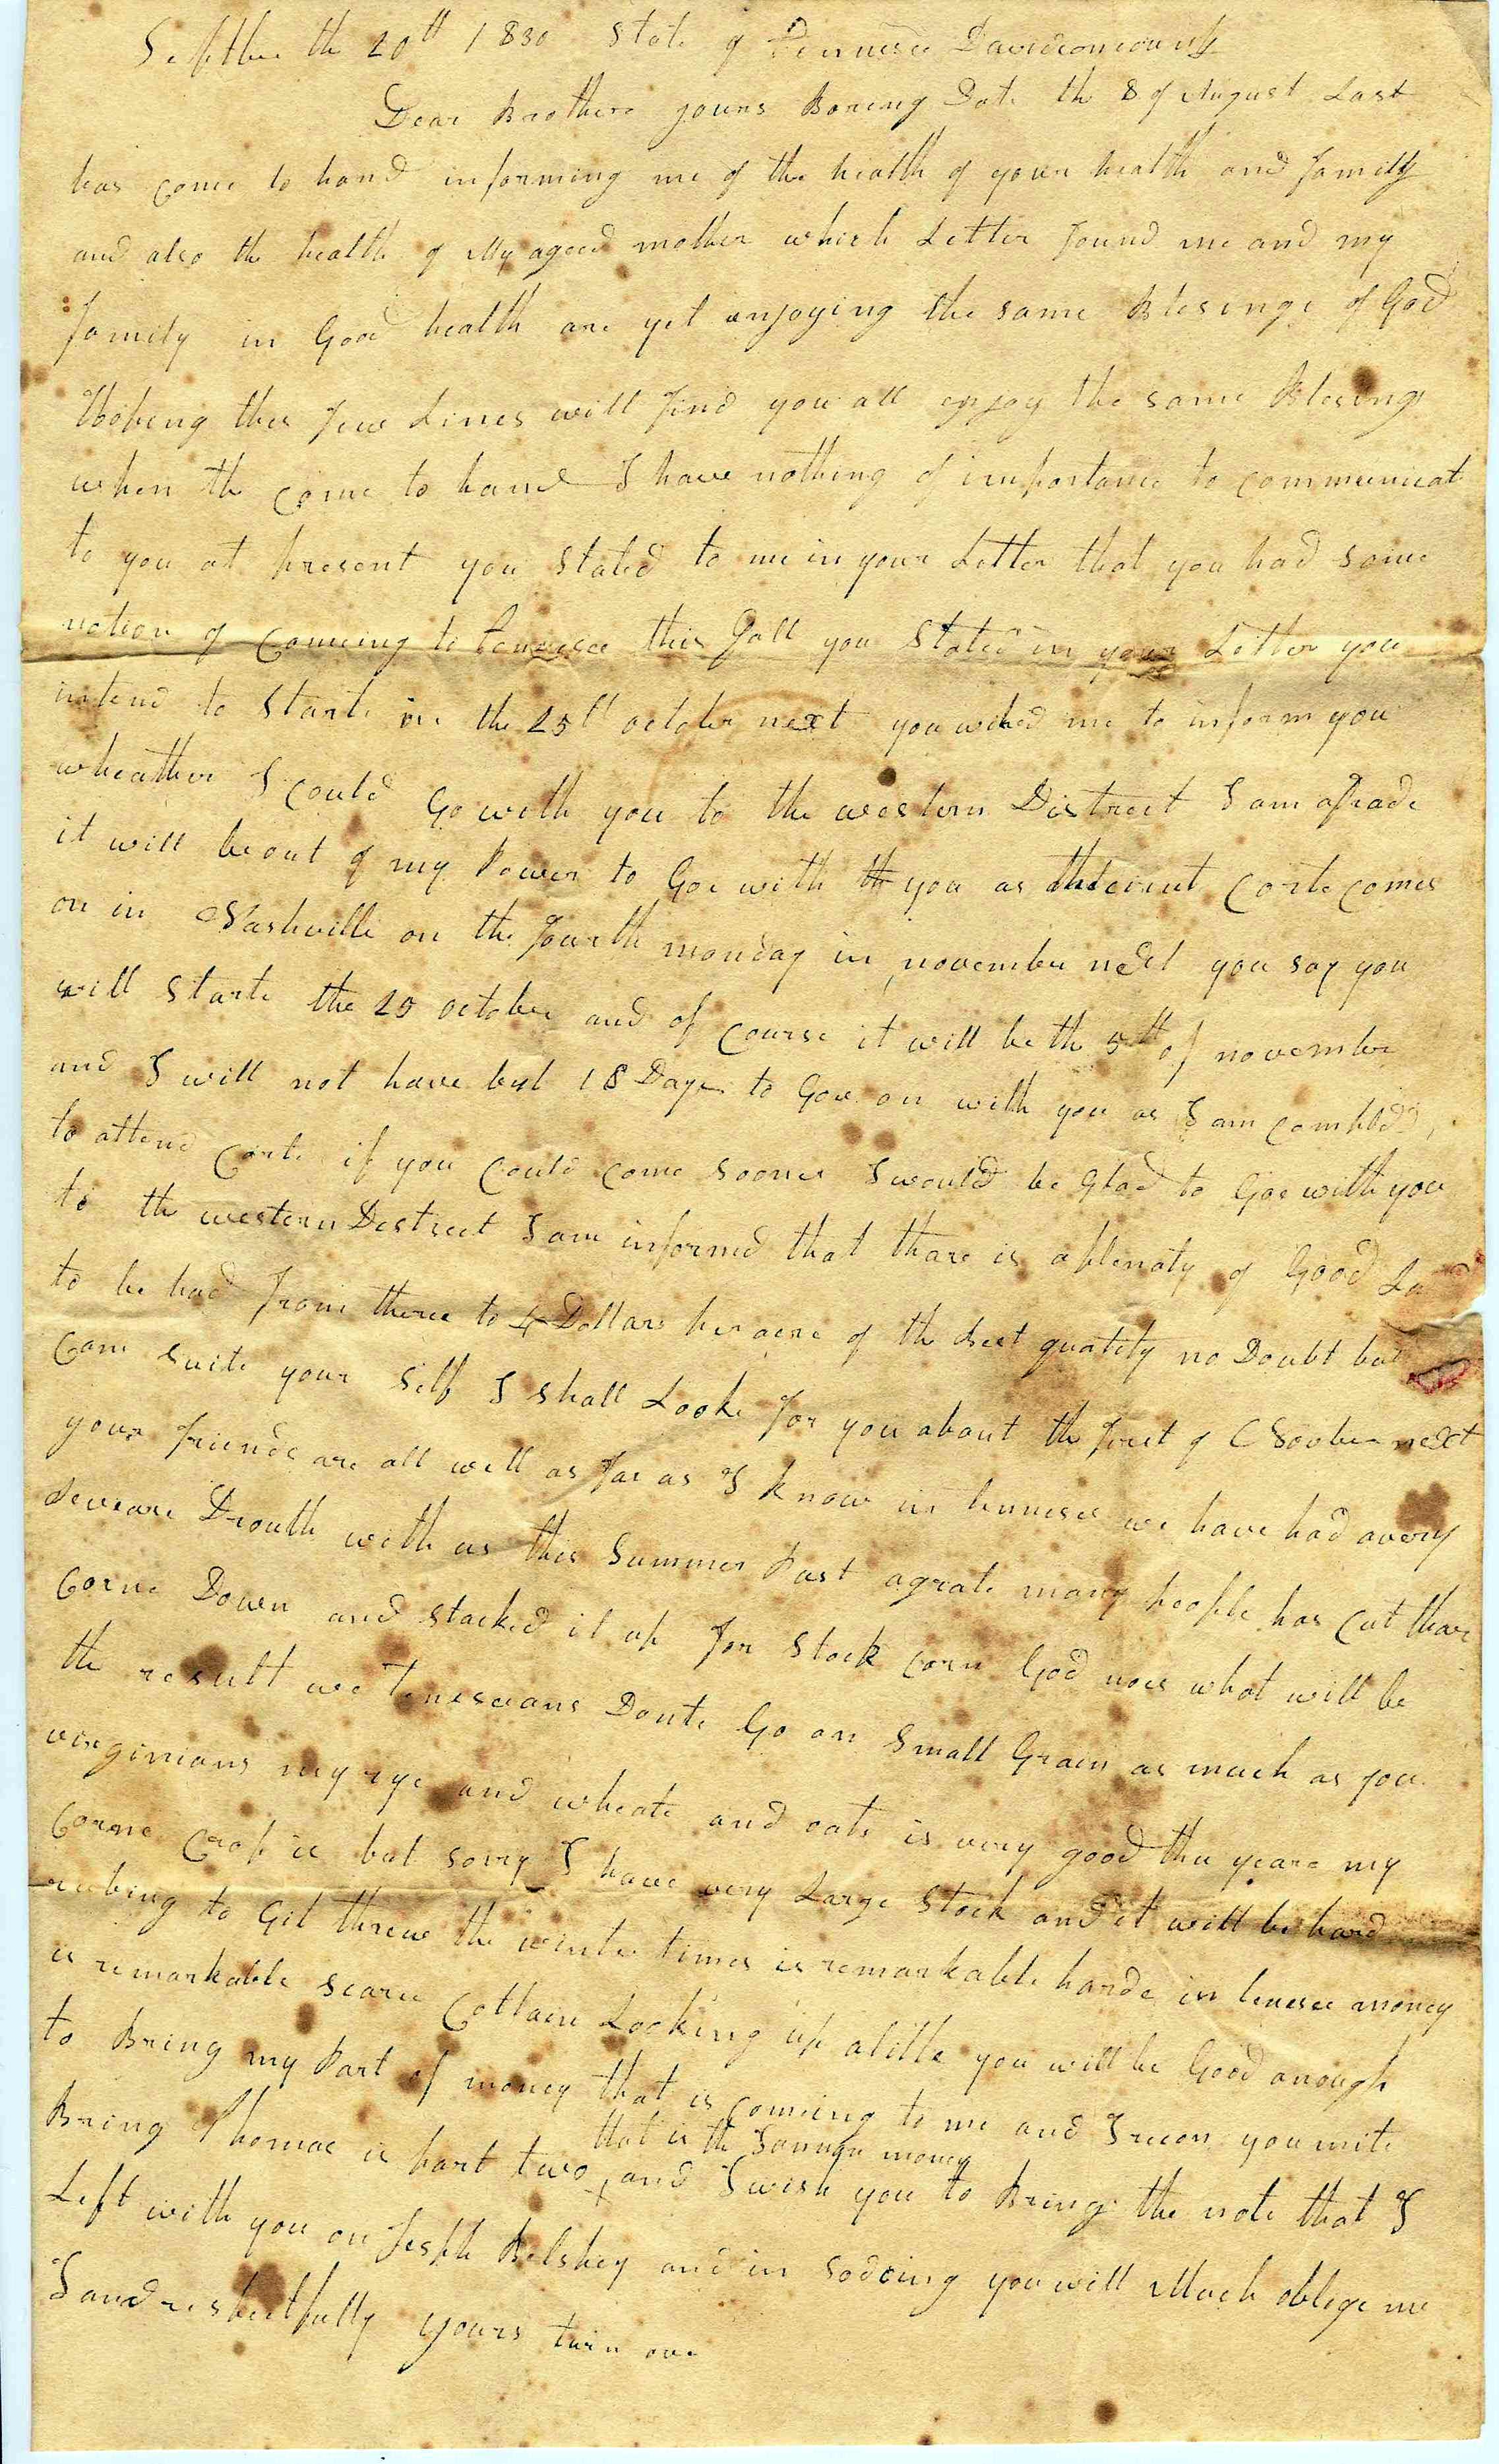 Septber the 20th 1830 State of Tennesee Davidsoncounty
Dear Brother yours Bareing Date the 8 of August Last
has come to hand informing me of the health of your health and family
and also the health of My aged mother which Letter found me and my
family in Good health are yet enjoying the same Blesings of God
Hobeing thes few Lines will find you all enjoy the same Blesings
when the come to hand I have nothing of importance to communicat
to you at present you Stated to me in your Letter that you had some
notion of Comeing to Tennesee this Fall you Stated in your Letter you
intend to Starte on the 25th october next you wished me to inform you
wheather I could Go with you to the western District I am afrade
it will be out of my Power to Goe with th you as the Corte comes
on in Nashville on the fourth monday in november next you say you
will Starte the 25 october and of course it will be the 5th of november
and I will not have but 18 Days to Goe on with you as I am
to attend Corte if you could come sooner I would be Glad to Goe with you
to the western Destrect I am informed that thare is aplenaty of Good
to be had from theree to 4 Dollars per acre of the Best quality no Doubt but
Can suite your Self I Shall Looke for you about the first of next
your friends are all well as far as I know in tennesee we have had avery
Seveare Drouth with us this Summer Past agrate many people has cut thare
Corne Down and stacked it up for Stock corn God nows what will be
the result we Teneseeans Donte Go on Small Grain as much as you
virginians my rye and wheate and oats is very good this yeare my
Corne Crop is but sorry I have very Large Stock and it will be hard
rubing to Git threw the winter times is remarkable harde in tenesee money
is remarkable scarce Cottain Looking up alittle you will be Good anough
to Bring my Part of money that is comeing to me and I recon you mite
that is the money
Bring Thomas is part two and I wish you to Bring the note that I
Left with you on Joseph and in Sodoing you will Much oblege me
I and respectfully yours turn over